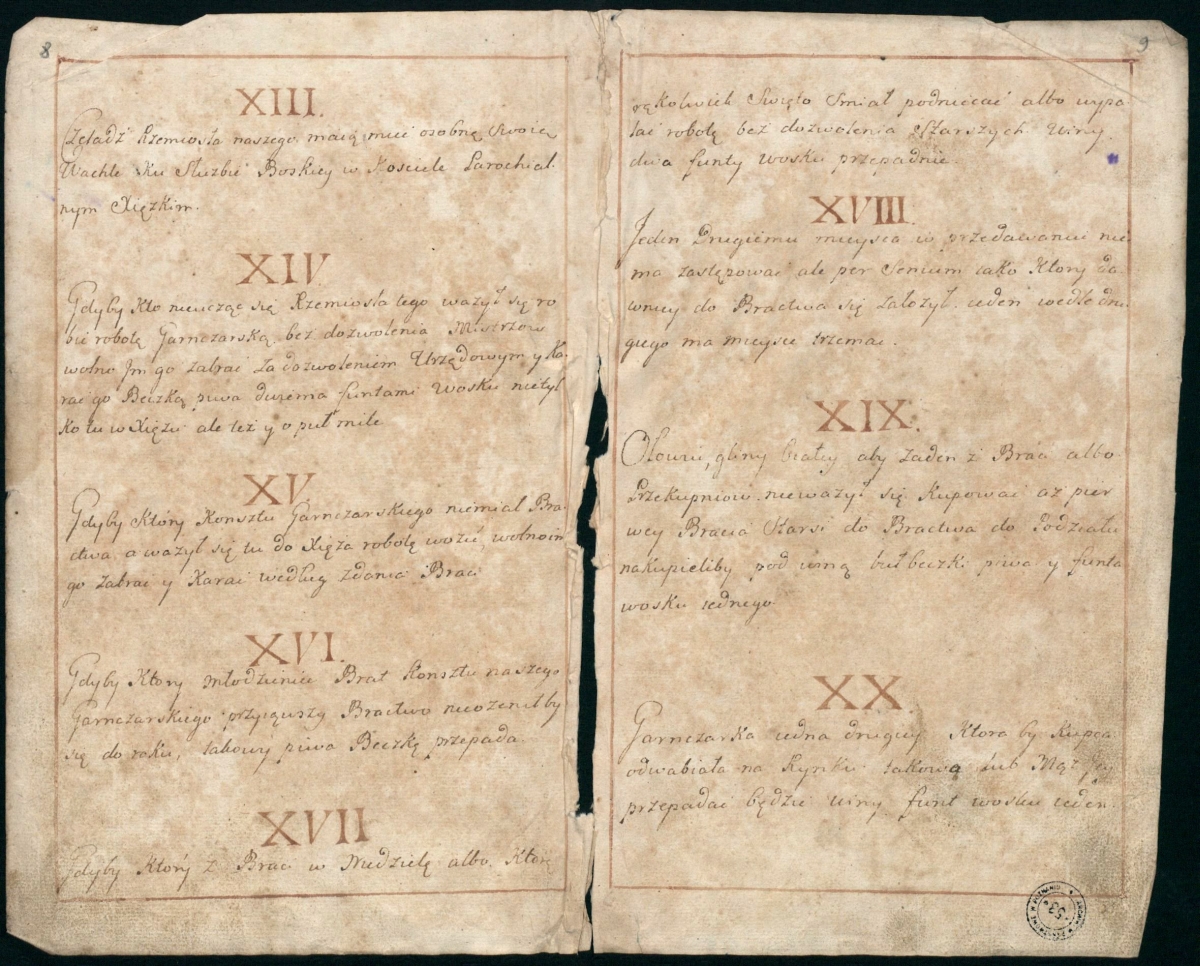 8
XIII.
Czeladź Rzemiosła naszego maią mieć osobne Swoie
Wachle Ku Służbie Boskiey w Kosciele Parochial
nym Xięzkim.
XIV.
Gdyby Kto nieucząc się Rzemiosła tego ważył się ro
bić robotę Garnczarską bez dozwolenia Mistrzow
wolno Jm go zabrać za dozwoleniem Urzędowym y Ka
rać go Beczką piwa dwiema funtami Wosku nietyl
ko tu w Xiężu ale też y o puł mile
XV.
Gdyby Który Konsztu Garnczarskiego niemiał Bra
ctwa, a ważył się tu do Xięża robotę wozić, wolno im
go zabrać y Karać według zdania Braci
XVI.
Gdyby Ktory młodzieniec Brat Konsztu naszego
Garnczarskiego przyiąwszy Bractwo nieożeniłby
się do roku, takowy piwa Beczkę przepada
XVII
Gdyby Który z Braci w Niedzielę albo Które
9
kolwiek Swięto Smiał podniecać albo wypa
lać robotę bez dozwolenia Starszych Winy
dwa funty wosku przepadnie.
XVIII.
Jeden Drugiemu mieysca w przedawaniu nie
ma zastępować ale per Senium iako Ktory da
wniey do Bractwa się założył ieden wedle dru
giego ma mieysce trzemać.
XIX.
Ołowiu, gliny białey aby żaden z Braci albo
Przekupniow nieważył się Kupować aż pier
wey Bracia Starsi do Bractwa do Podziału
nakupieliby pod winą puł beczki piwa y funta
wosku iednego
XX.
Garnczarka iedna drugiey Ktora by Kupca
odwabiała na Rynku takowa lub Mąż Jey
przepadać będzie winy funt wosku ieden